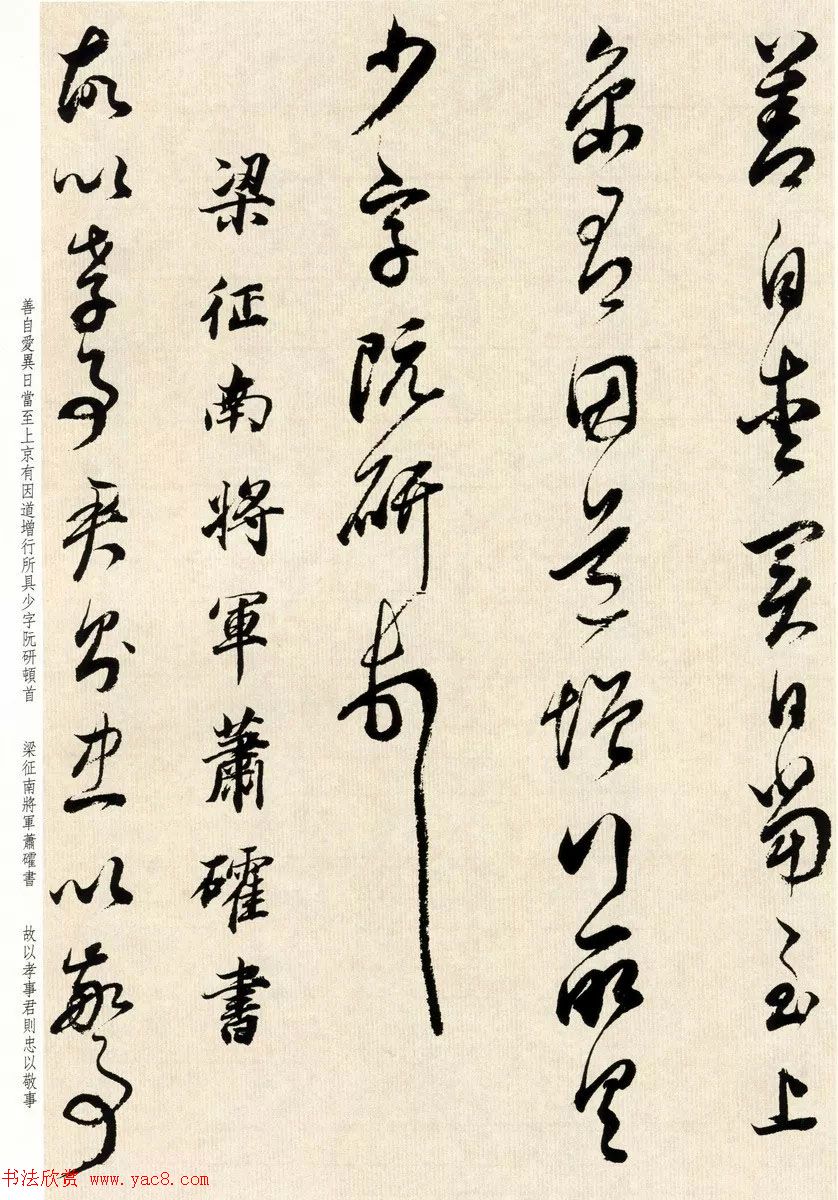 善自愛異日當至上
京有因道增行所具
少字阮研頓首
梁征南將軍蕭確書
故以孝事君則忠以敬事
善自愛異日當至上京有因道增行所具少字阮研頓首
梁征南將軍蕭確書
故以孝事君則忠以敬事
书法欣赏 www.yac8.com